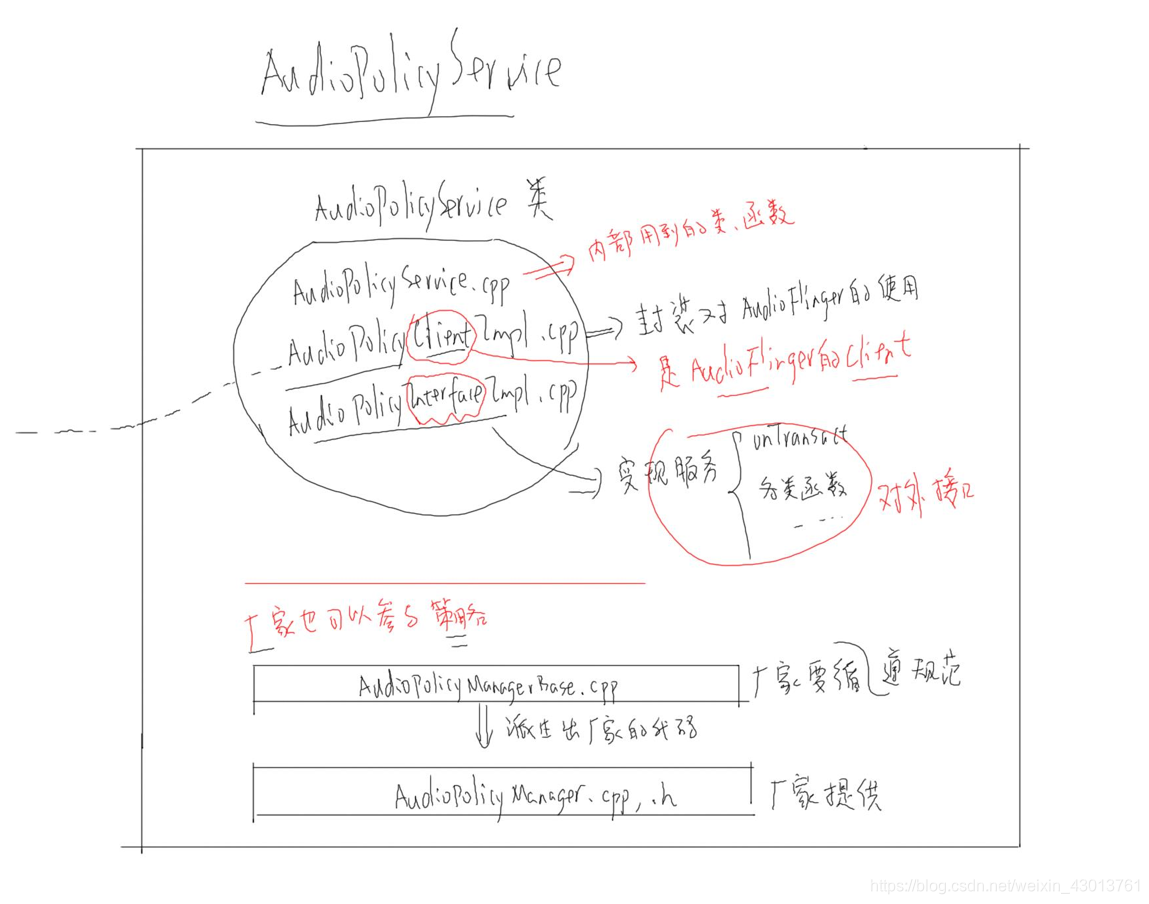 AudioPolicyService
AudioPolicyService 类
AudioPolicyService.cpp
内部用到的类、函数
AudioPolicyClientImpl.cpp
封装对AudioFlinger的使用
是AudioFlinger的Client
AudioPolicyInterfaceImpl.cpp
实现服务
onTransact
各类函数
对外接口
厂家也可以参与策略
AudioPolicyManagerBase.cpp
厂家要循遵规范
派生出厂家的代码
AudioPolicyManager.cpp, .h
厂家提供
https://blog.csdn.net/weixin_43013761